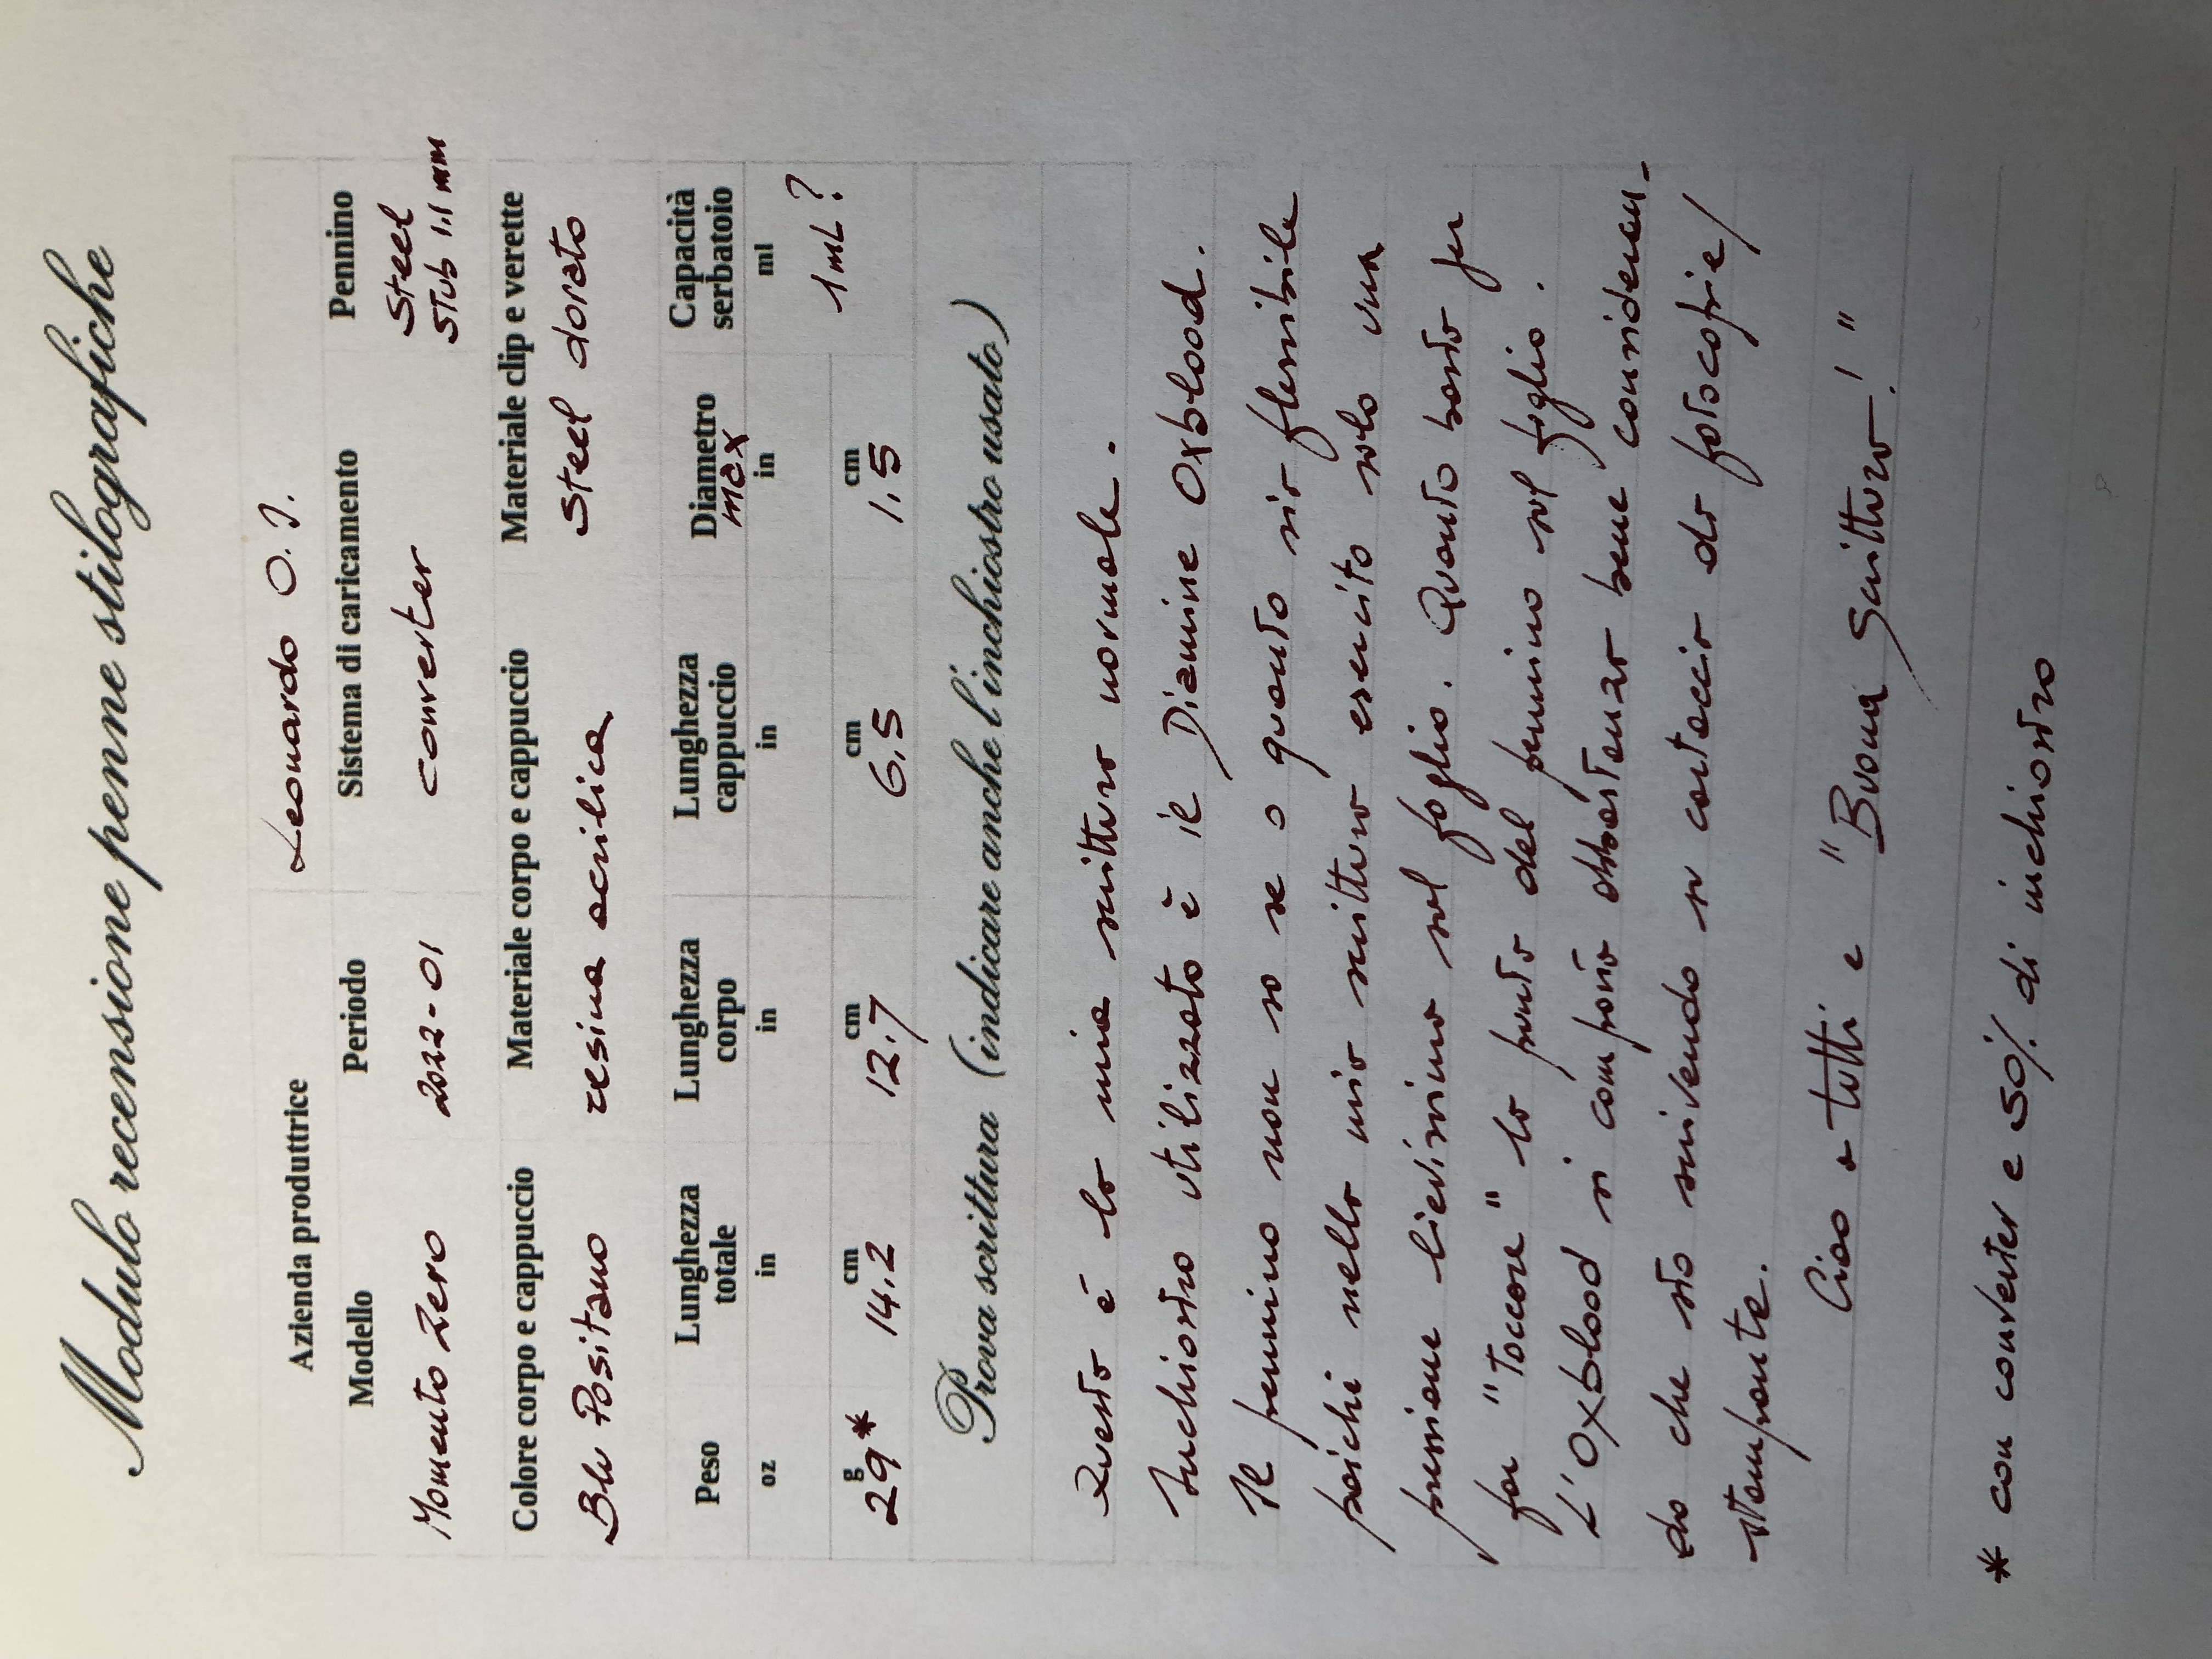 Modulo recensione penne stilografiche
Azienda produttrice Leonardo O.I.
Modello Periodo Sistema di caricamento Pennino
Momento Zero 2022-01 converter Steel
Stub 1.1 mm
Colore corpo e cappuccio Materiale corpo e cappuccio Materiale clip e verette
Blu Positano resina acrilica Steel dorato
Peso Lunghezza totale Lunghezza corpo Lunghezza cappuccio Diametro max Capacità serbatoio
oz in in in in ml
g cm cm cm cm 1 mL?
29* 14,2 12,7 6,5 1,5
Prova scrittura (indicare anche l'inchiostro usato)
Questa è la mia scrittura normale.
Inchiostro utilizzato è il Diamine Oxblood.
Il pennino non so se o quanto sia flessibile
poiché nella mia scrittura esercito solo una
pressione lievissima sul foglio. Quanto basta per
far "toccare" la punta del pennino sul foglio.
L'Oxblood si comporta abbastanza bene consideran-
do che sto scrivendo su cartaccia da fotocopie/
stampante.
Ciao a tutti e "Buona Scrittura!"
* con converter e 50% di inchiostro